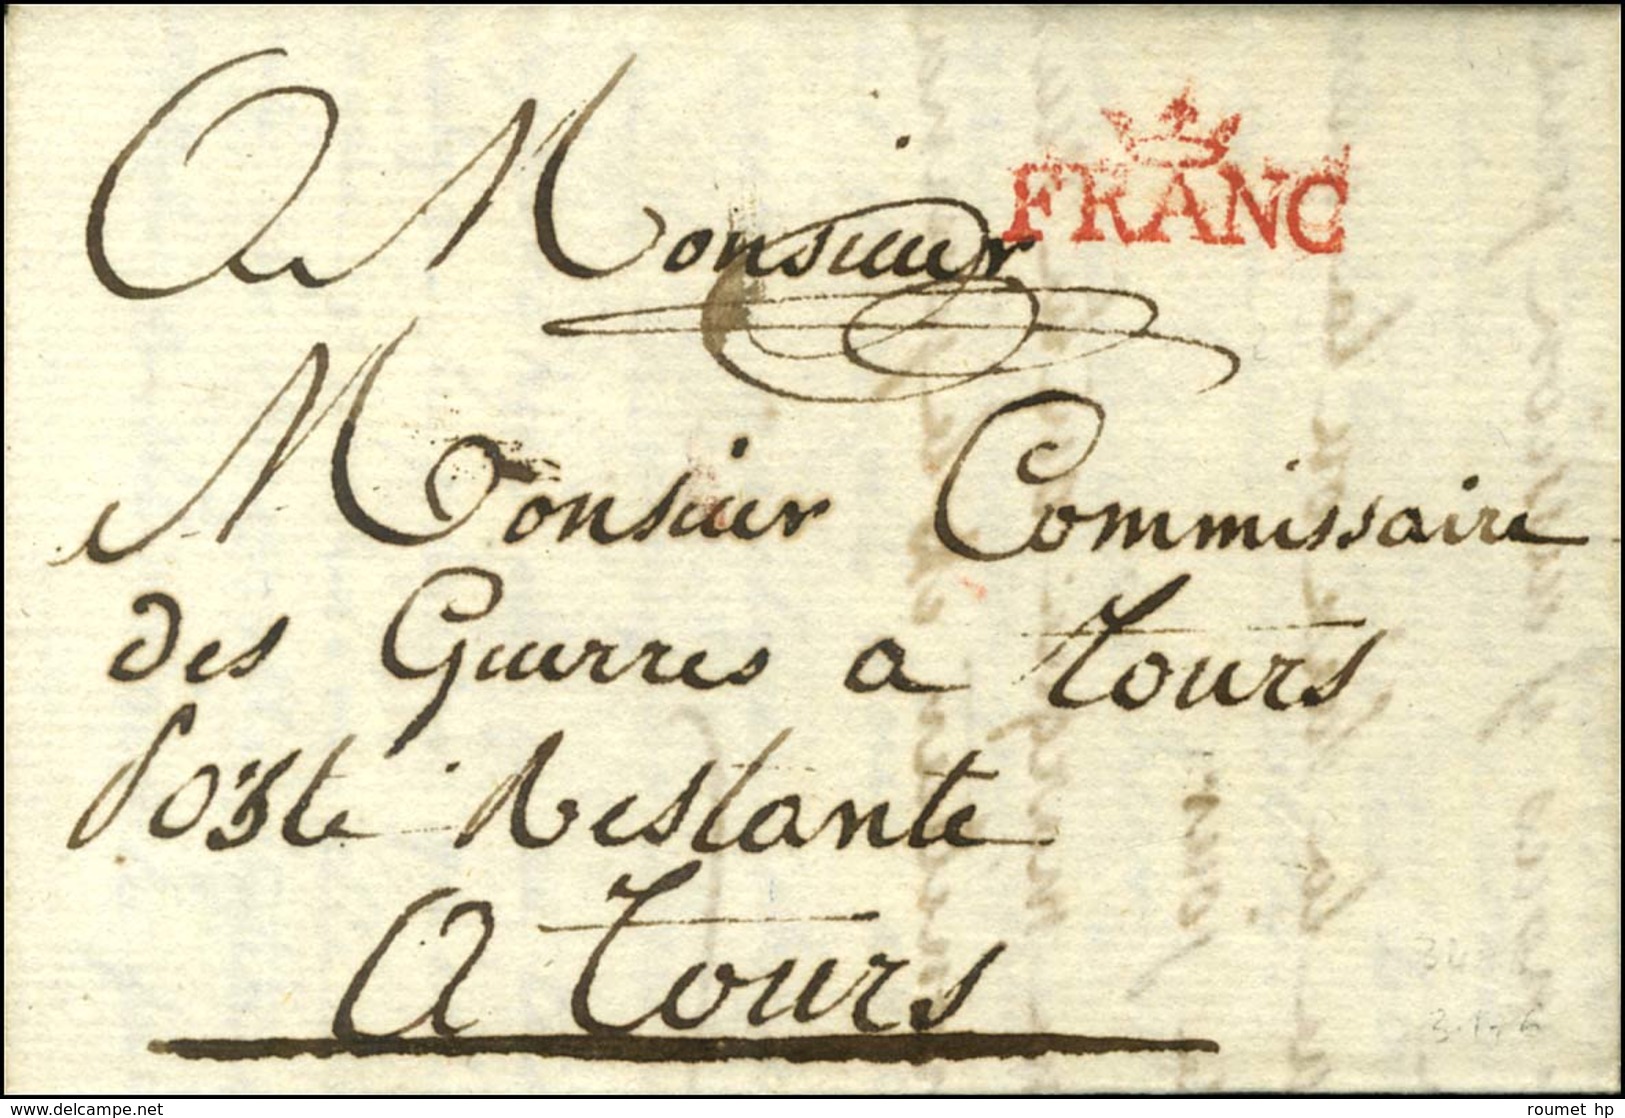 A Monsieur
FRANC
Monsieur Commissaire
des Guerres a Tours
Poste Restante
A Tours
www.delcampe.net
roumet hp